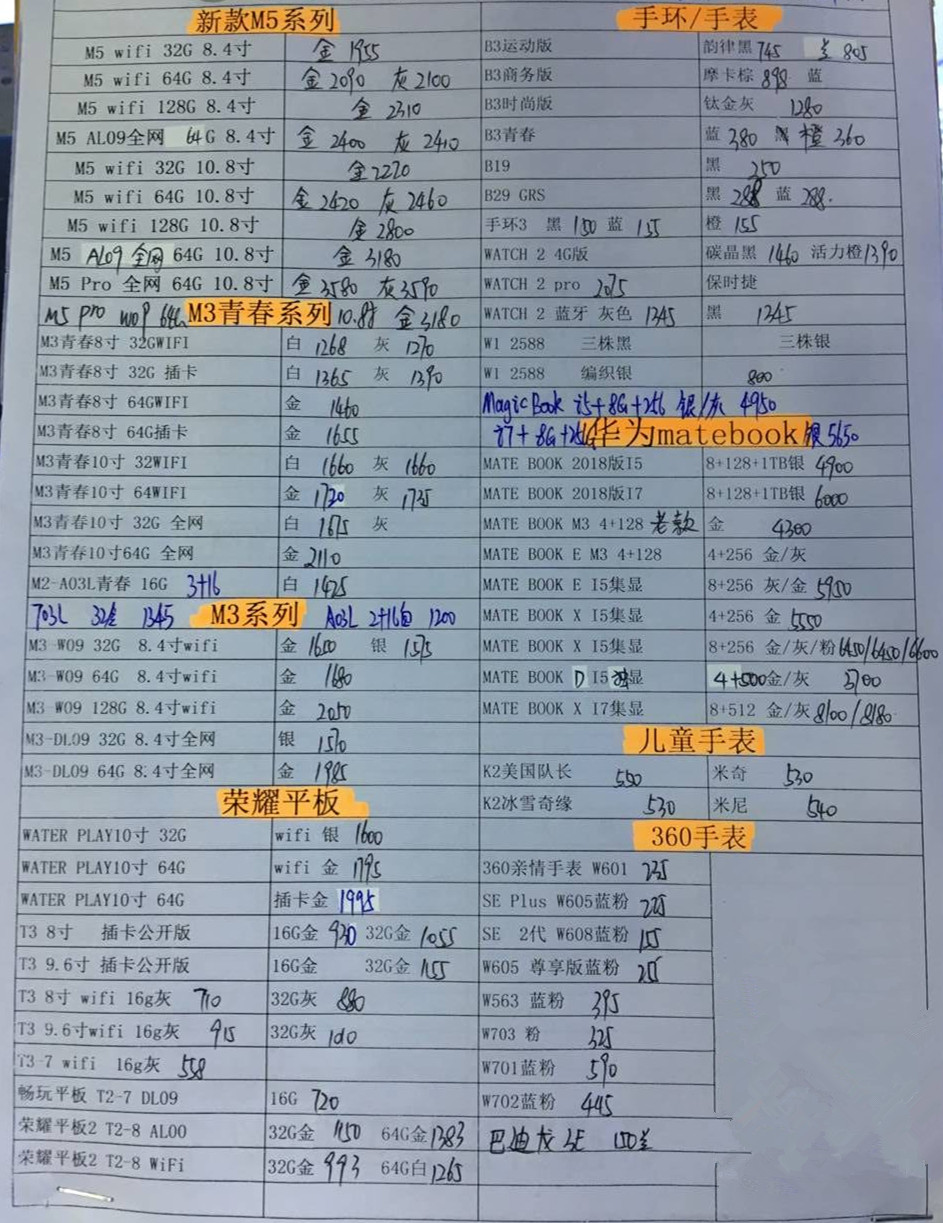 新款M5系列
M5 wifi 32G 8.4寸 金 1955
M5 wifi 64G 8.4寸 金2090 灰2100
M5 wifi 128G 8.4寸 金 2310
M5 AL09全网 64G 8.4寸 金 2400 灰 2410
M5 wifi 32G 10.8寸 金2270
M5 wifi 64G 10.8寸 金2420 灰2460
M5 wifi 128G 10.8寸 金2800
M5 AL09全网 64G 10.8寸 金 3180
M5 Pro 全网 64G 10.8寸 金3580 灰3590
M5 pro W09 64G 10.8寸 金3180
M3青春系列
M3青春8寸 32GWIFI 白 1268 灰 1270
M3青春8寸 32G 插卡 白 1365 灰 1390
M3青春8寸 64GWIFI 金 1460
M3青春8寸 64G插卡 金 1655
M3青春10寸 32WIFI 白 1660 灰 1660
M3青春10寸 64WIFI 金 1720 灰 1735
M3青春10寸 32G 全网 白 1675 灰
M3青春10寸64G 全网 金2110
M2-A03L青春 16G 3+16 白 1425
703L 32金 1345
M3系列
A03L 2+16白 1200
M3-W09 32G 8.4寸wifi 金 1600 银 1575
M3-W09 64G 8.4寸wifi 金 1680
M3-W09 128G 8.4寸wifi 金 2050
M3-DL09 32G 8.4寸全网 银 1570
M3-DL09 64G 8.4寸全网 金 1985
荣耀平板
WATER PLAY10寸 32G wifi 银 1600
WATER PLAY10寸 64G wifi 金 1795
WATER PLAY10寸 64G 插卡金 1995
T3 8寸 插卡公开版 16G金 930 32G金 1055
T3 9.6寸 插卡公开版 16G金 32G金 1155
T3 8寸 wifi 16g灰 710 32G灰 880
T3 9.6寸wifi 16g灰 915 32G灰
T3-7 wifi 16g灰 558
畅玩平板 T2-7 DL09 16G 720
荣耀平板2 T2-8 AL00 32G金 1150 64G金1383
荣耀平板2 T2-8 WiFi 32G金 993 64G白1265
手环/手表
B3运动版 韵律黑745 805
B3商务版 摩卡棕 898 蓝
B3时尚版 钛金灰 1280
B3青春 蓝 380 橙 360
B19 黑 250
B29 GRS 黑 288 蓝 288.
手环3 黑 150 蓝 155 橙 155
WATCH 2 4G版 碳晶黑 1460 活力橙1390
WATCH 2 pro 2075 保时捷
WATCH 2 蓝牙 灰色 1345 黑 1345
W1 2588 三株黑 三株银
W1 2588 编织银 800
MagicBook i5+8G+256 银/灰 4950
i7+8G+256G 银5650
华为matebook
MATE BOOK 2018版I5 8+128+1TB银 4900
MATE BOOK 2018版I7 8+128+1TB银 6000
MATE BOOK M3 4+128 老款 金 4300
MATE BOOK E M3 4+128 4+256 金/灰
MATE BOOK E I5集显 8+256 灰/金 5950
MATE BOOK X I5集显 4+256 金 5550
MATE BOOK X I5集显 8+256 金/灰/粉6450/6450/6600
MATE BOOK D I5独显 4+500金/灰 3700
MATE BOOK X I7集显 8+512 金/灰8100/8180
儿童手表
K2美国队长 550 米奇 530
K2冰雪奇缘 530 米尼 540
360手表
360亲情手表 W601 235
SE Plus W605蓝粉 225
SE 2代 W608蓝粉 155
W605 尊享版蓝粉 255
W563 蓝粉 395
W703 粉 325
W701蓝粉 590
W702蓝粉 445
巴迪龙 3E 150